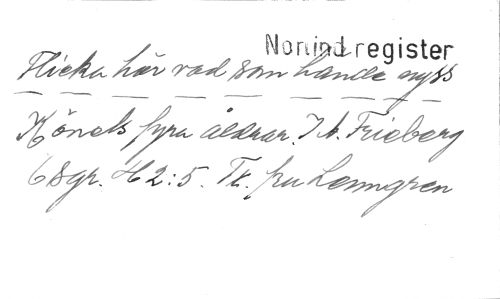 Nonindregister
Flicka hör vad som hände nyss
Könets fyra åldrar. J. A. Frieberg
6 Bgr. H 2:5. Tx. fru Lenngren